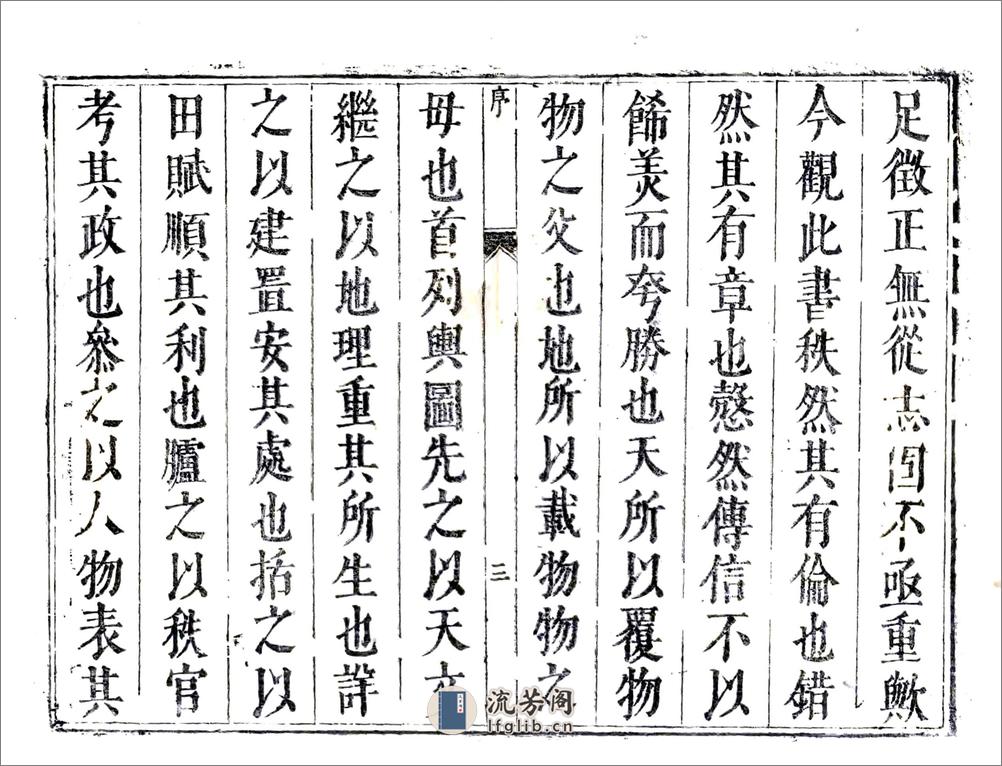 足徵正無從志固不亟重歟
今觀此書秩然其有倫也錯
然其有章也慤然傳信不以
餙羙而夸勝也天所以覆物
物之父也地所以載物物之
序 三
母也首列輿圖先之以天文
繼之以地理重其所生也詳
之以建置安其處也括之以
田賦順其利也臚之以秩官
考其政也叅之以人物表其
流芳阁
lfglib.cn